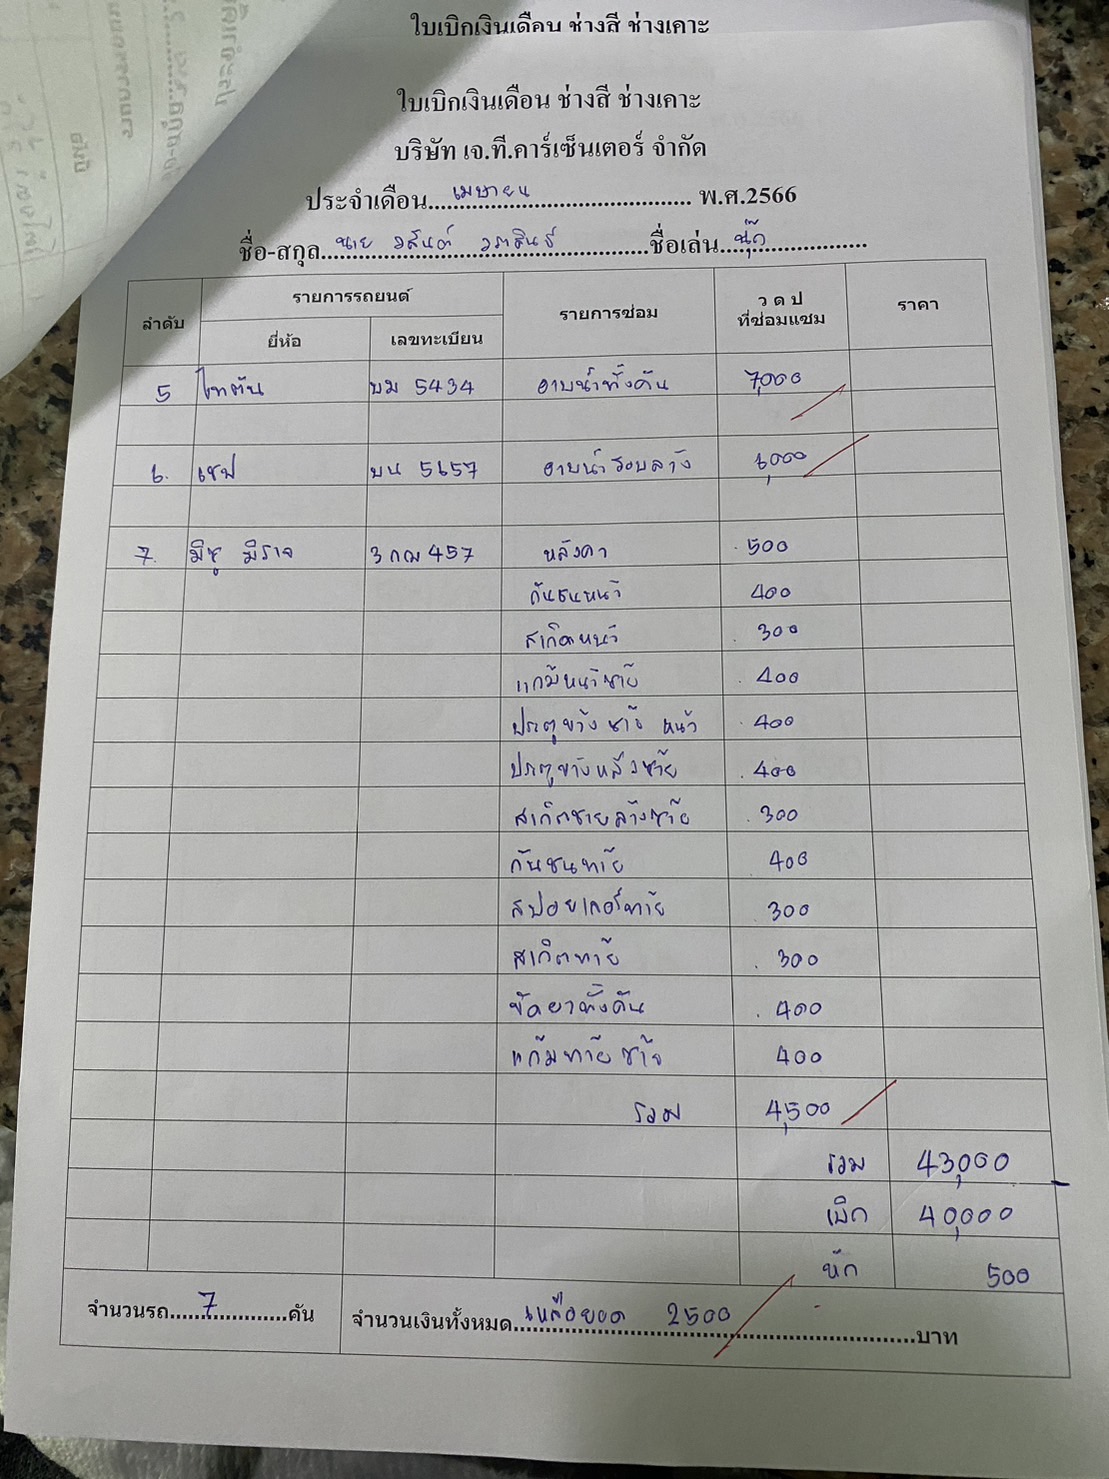 ใบเบิกเงินเดือน ช่างสี ช่างเคาะ
ใบเบิกเงินเดือน ช่างสี ช่างเคาะ
บริษัท เจ.ที.คาร์เซ็นเตอร์ จำกัด
ประจำเดือน....เมษายน.... พ.ศ.2566
ชื่อ-สกุล....นาย วสันต์ วราสินธ์....ชื่อเล่น....นุ๊ก....
ลำดับ รายการรถยนต์ รายการซ่อม ว ด ป ที่ซ่อมแซม ราคา
ยี่ห้อ เลขทะเบียน
5 ไทตัน บม 5434 อาบน้ำทั้งคัน 7,000
6. เชฟ บน 5657 อาบน้ำรอบล่าง 6,000
7. มิซู มิราจ 3 กฒ 457 หลังคา 500
กันชนหน้า 400
สเกิตหน้า 300
แก้มหน้าซ้าย 400
ประตูข้างซ้าย หน้า 400
ประตูข้างหลังซ้าย 400
สเกิตชายล่างซ้าย 300
กันชนท้าย 400
สปอยเลอร์ท้าย 300
สเกิตท้าย 300
ขัดยาทั้งคัน 400
แก้มท้ายซ้าย 400
รวม 4,500
รวม 43,000
เบิก 40,000
หัก 500
จำนวนรถ....7....คัน จำนวนเงินทั้งหมด....เหลือยอด 2500....บาท